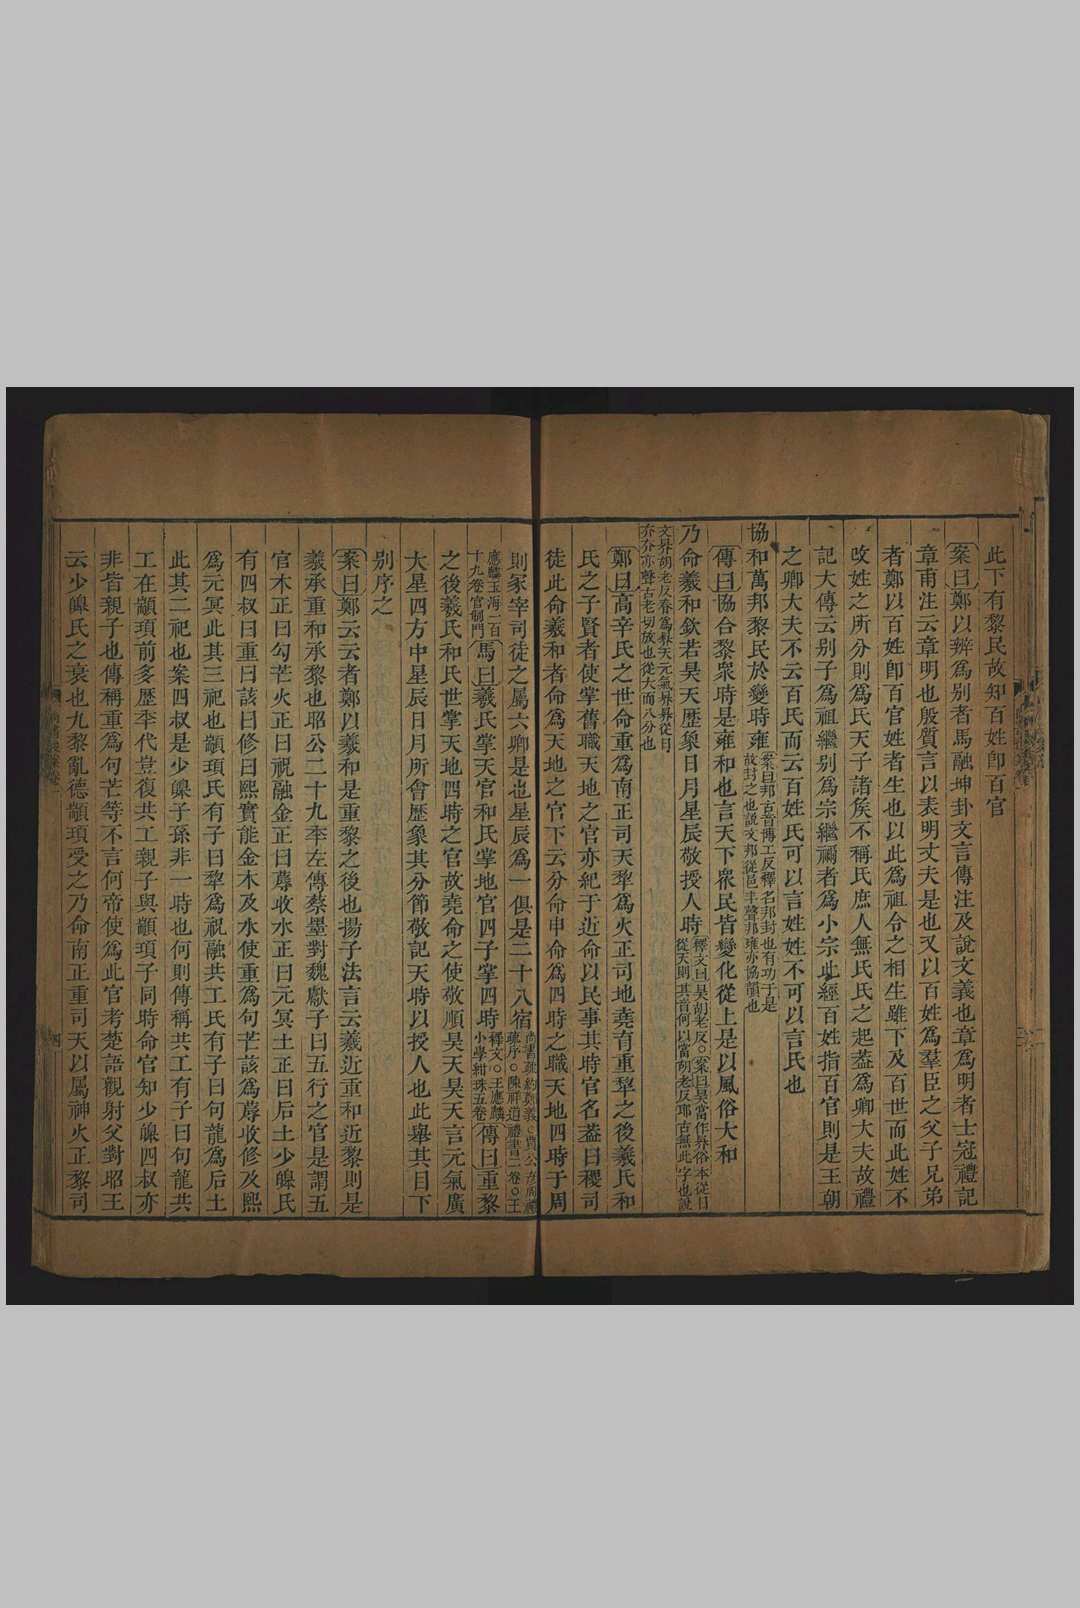 此下有黎民故知百姓卽百官
案曰鄭以辨爲别者馬融坤卦文言傳注及說文義也章爲明者士冠禮記
章甫注云章明也殷質言以表明丈夫是也又以百姓爲羣臣之父子兄弟
者鄭以百姓卽百官姓者生也以此爲祖令之相生雖下及百世而此姓不
改姓之所分則爲氏天子諸矦不稱氏庶人無氏氏之起葢爲卿大夫故禮
記大傳云别子爲祖繼别爲宗繼禰者爲小宗此經百姓指百官則是王朝
之卿大夫不云百氏而云百姓氏可以言姓姓不可以言氏也
協和萬邦黎民於變時雍案曰邦古音博工反釋名邦封也有功于是故封之也説文邦從邑丰聲邦雍亦協韻也
傳曰協合黎衆時是雍和也言天下衆民皆變化從上是以風俗大和
乃命羲和欽若昊天厯象日月星辰敬授人時釋文曰昊胡老反○案曰昊當作昦俗本從日從天則其音何以當胡老反耶古無此字也說
文昦胡老反春爲昦天元氣昦昦從日夰夰亦聲古老切放也從大而八分也
鄭曰高辛氏之世命重爲南正司天犂爲火正司地堯育重犂之後羲氏和
氏之子賢者使掌舊職天地之官亦紀于近命以民事其時官名葢曰稷司
徒此命羲和者命爲天地之官下云分命申命爲四時之職天地四時于周
則冢宰司徒之屬六卿是也星辰爲一俱是二十八宿尚書疏約鄭義○賈公彥周禮疏序○陳祥道禮書二卷○王
應麟玉海一百十九卷官制門馬曰羲氏掌天官和氏掌地官四子掌四時釋文○王應麟小學紺珠五卷傳曰重黎
之後羲氏和氏世掌天地四時之官故堯命之使敬順昊天昊天言元氣廣
大星四方中星辰日月所會厯象其分節敬記天時以授人也此舉其目下
别序之
案曰鄭云云者鄭以羲和是重黎之後也揚子法言云羲近重和近黎則是
羲承重和承黎也昭公二十九年左傳蔡墨對魏獻子曰五行之官是謂五
官木正曰勾芒火正曰祝融金正曰蓐收水正曰元冥土正曰后土少皞氏
有四叔曰重曰該曰修曰熙實能金木及水使重爲句芒該爲蓐收修及熙
爲元冥此其三祀也顓頊氏有子曰犂爲祝融共工氏有子曰句龍爲后土
此其二祀也案四叔是少皞子孫非一時也何則傳稱共工有子曰句龍共
工在顓頊前多厯年代豈復共工親子與顓頊子同時命官知少皞四叔亦
非皆親子也傳稱重爲句芒等不言何帝使爲此官考楚語觀射父對昭王
云少皞氏之衰也九黎亂德顓頊受之乃命南正重司天以屬神火正黎司